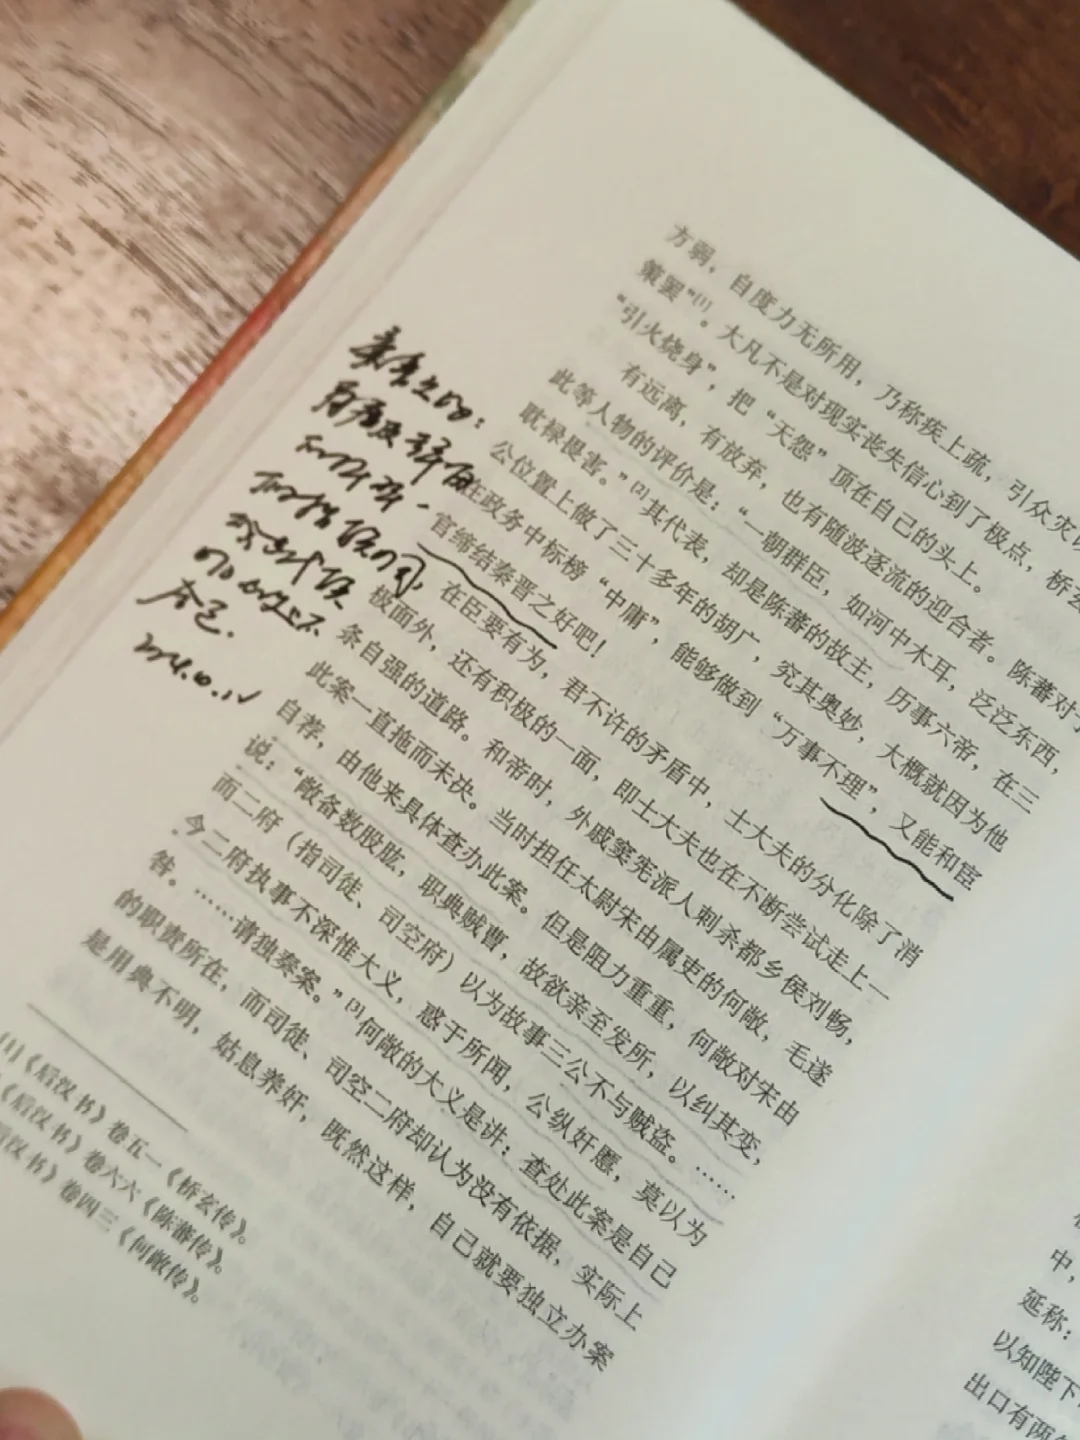 方弱，自度力无所用，乃称疾上疏，引众灾以
策罢”[1]。大凡不是对现实丧失信心到了极点，桥玄
“引火烧身”，把“天怨”顶在自己的头上。
有远离，有放弃，也有随波逐流的迎合者。陈蕃对于
此等人物的评价是：“一朝群臣，如河中木耳，泛泛东西，
耽禄畏害。”[2]其代表，却是陈蕃的故主，历事六帝，在三
公位置上做了三十多年的胡广，究其奥妙，大概就因为他
在政务中标榜“中庸”，能够做到“万事不理”，又能和宦
官缔结秦晋之好吧！
在臣要有为，君不许的矛盾中，士大夫的分化除了消
极面外，还有积极的一面，即士大夫也在不断尝试走上一
条自强的道路。和帝时，外戚窦宪派人刺杀都乡侯刘畅，
此案一直拖而未决。当时担任太尉宋由属吏的何敞，毛遂
自荐，由他来具体查办此案。但是阻力重重，何敞对宋由
说：“敞备数股肱，职典贼曹，故欲亲至发所，以纠其变，
而二府（指司徒、司空府）以为故事三公不与贼盗。……
今二府执事不深惟大义，惑于所闻，公纵奸慝，莫以为
咎。……请独奏案。”[3]何敞的大义是讲：查处此案是自己
的职责所在，而司徒、司空二府却认为没有依据，实际上
是用典不明，姑息养奸，既然这样，自己就要独立办案
[1]《后汉书》卷五一《桥玄传》。
《后汉书》卷六六《陈蕃传》。
后汉书》卷四三《何敞传》。
中，
延称：
以知陛下
出口有两